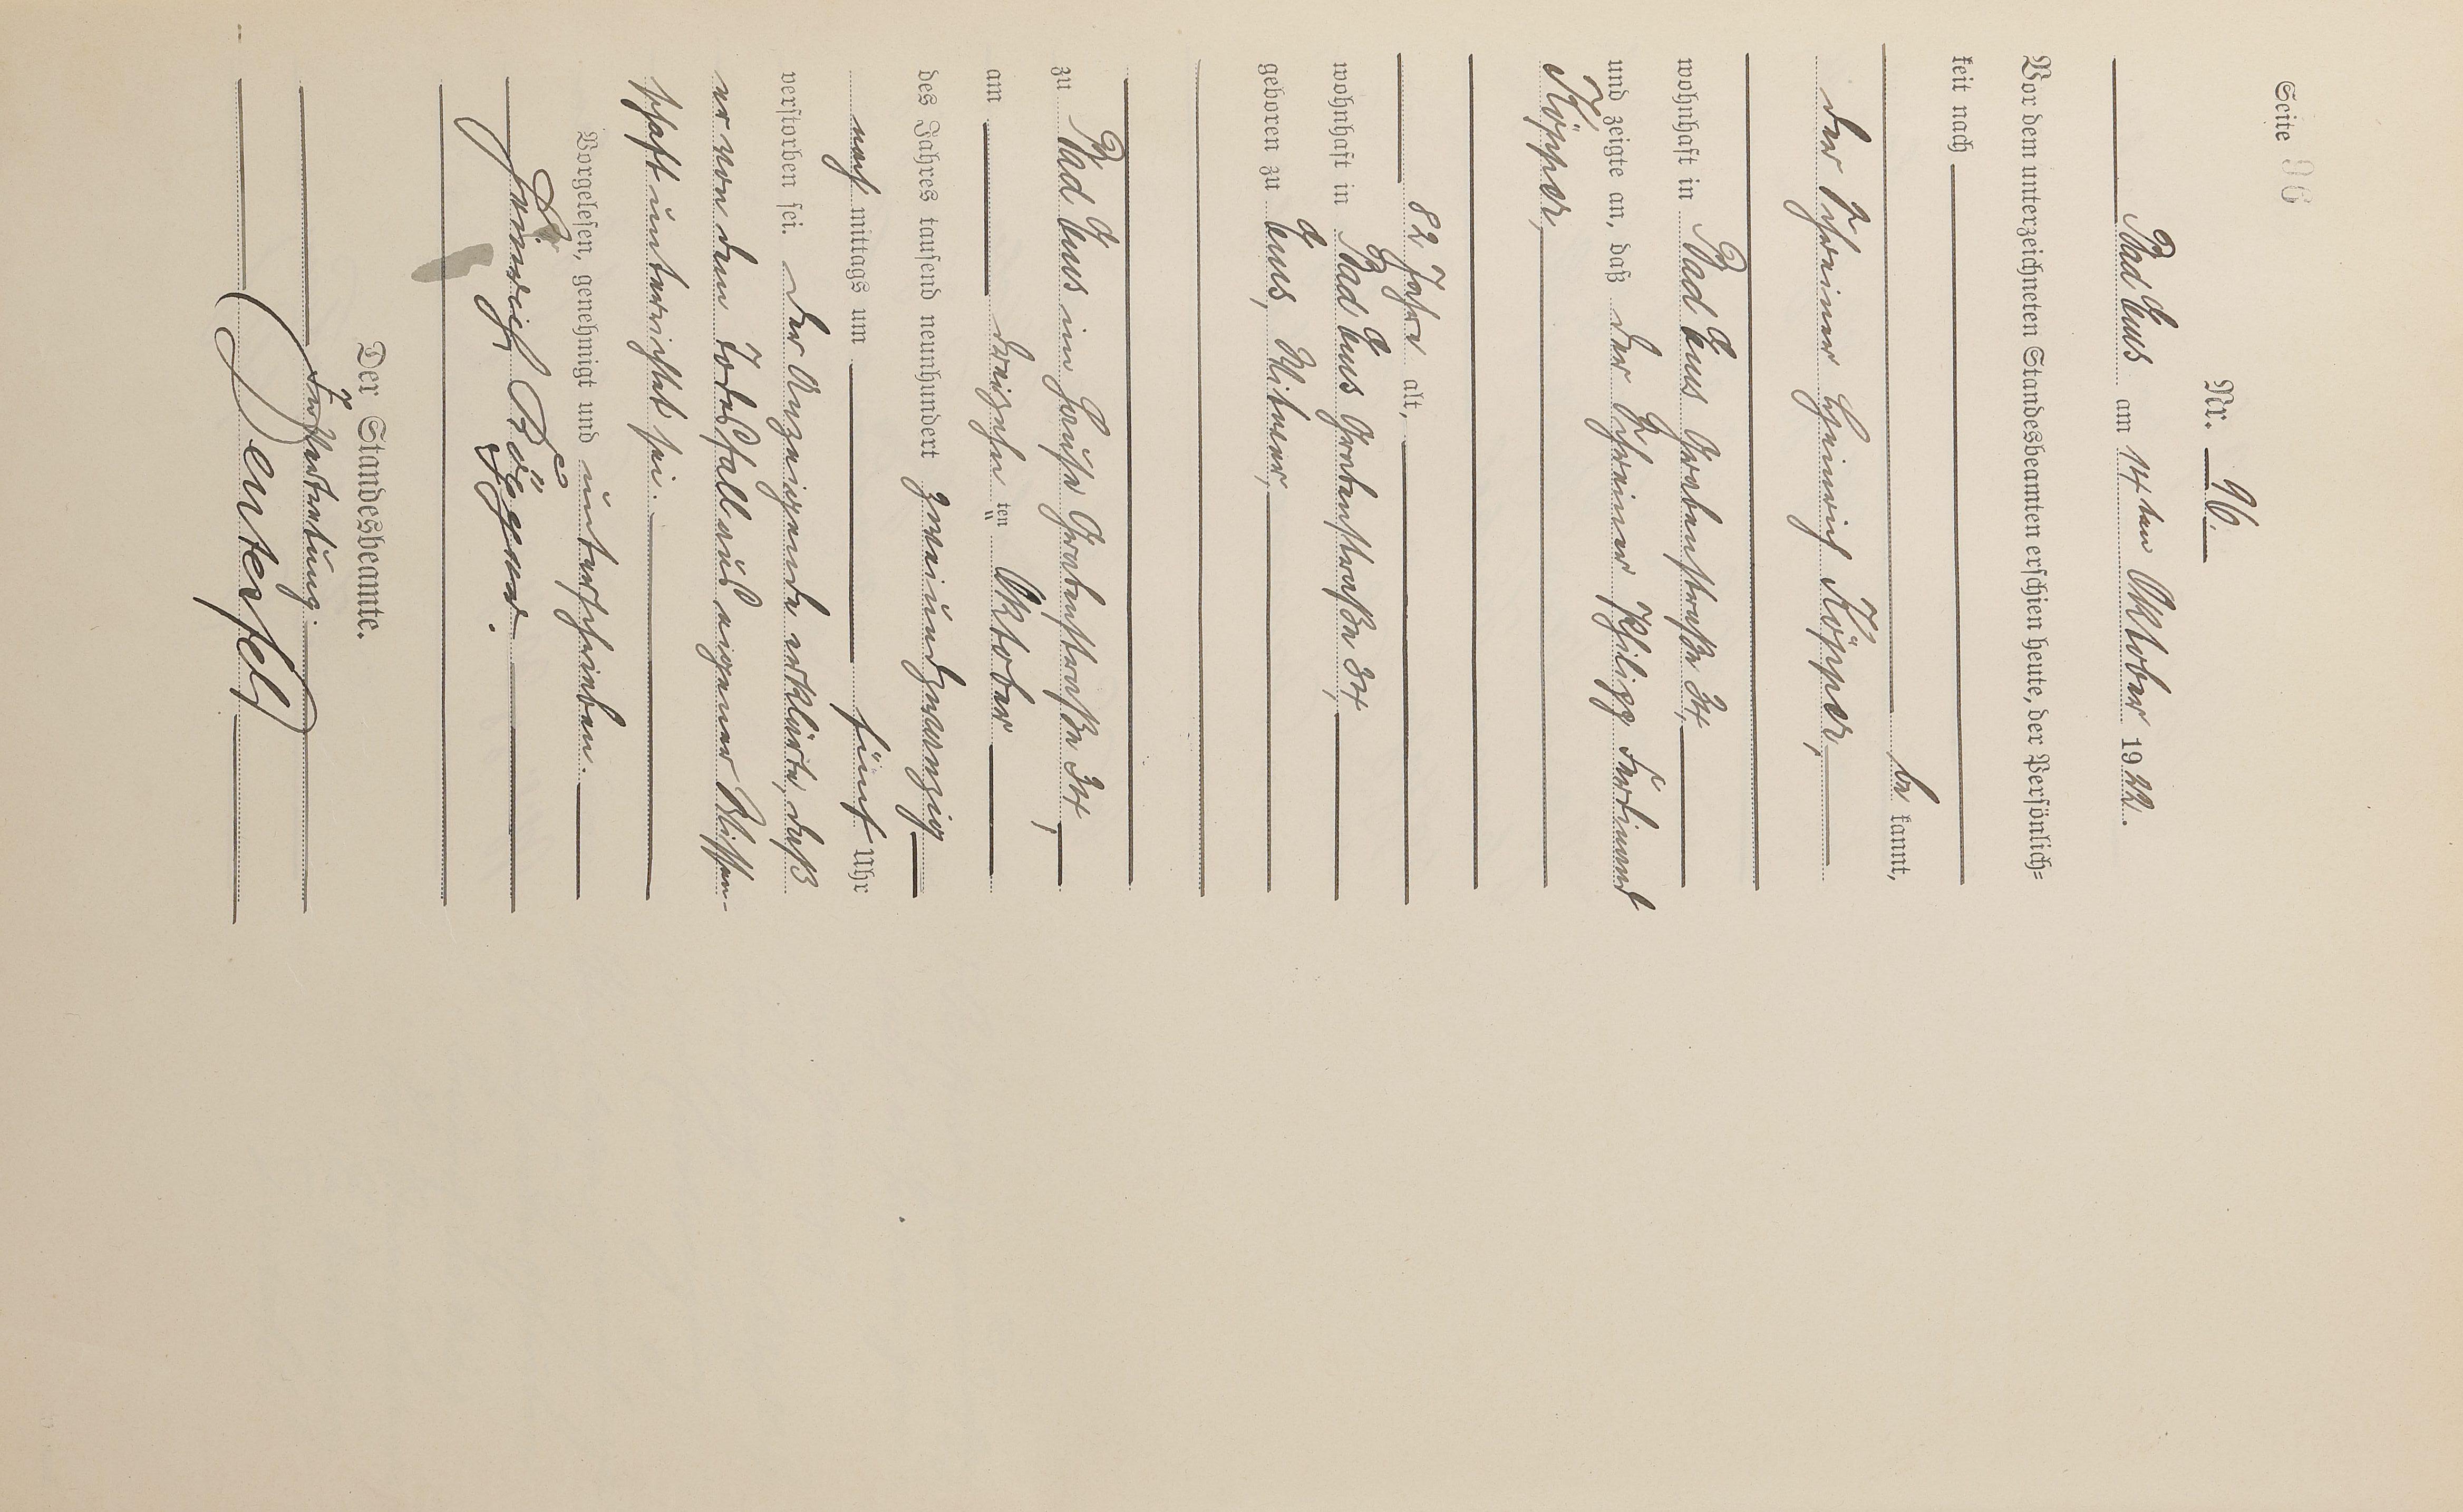 Seite 96
Nr. 96.
Bad Ems am 14ten Oktober 1922.
Vor dem unterzeichneten Standesbeamten erschien heute, der Persönlich=
keit nach
be kannt,
der Schreiner Heinrich Köpper,
wohnhaft in Bad Ems Grabenstraße 34,
und zeigte an, daß der Schreiner Philipp Ferdinand
Köpper,
82 Jahre alt,
wohnhaft in Bad Ems Grabenstraße 34,
geboren zu Ems, Witwer,
zu Bad Ems im Hause Grabenstraße 34,
am dreizehn ten Oktober
des Jahres tausend neunhundert zweiundzwanzig
nach mittags um fünf Uhr
verstorben sei. Der Anzeigende erklärte, daß
er von dem Todesfall aus eigener Wissen-
schaft unterrichtet sei.
Vorgelesen, genehmigt und unterschrieben.
Heinrich Köpper.
Der Standesbeamte.
In Vertretung